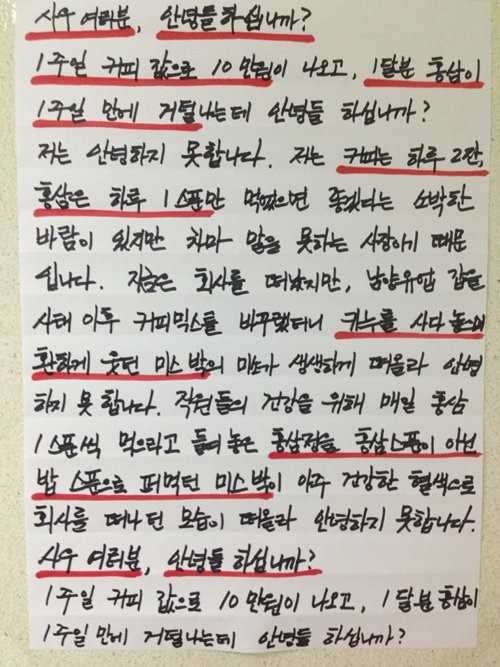 사우 여러분, 안녕들 하십니까?
1주일 커피 값으로 10만원이 나오고, 1달분 홍삼이
1주일 만에 거덜나는데 안녕들 하십니까?
저는 안녕하지 못합니다. 저는 커피는 하루 2잔,
홍삼은 하루 1스푼만 먹었으면 좋겠다는 소박한
바람이 있지만 차마 말을 못하는 사람이기 때문
입니다. 지금은 회사를 떠났지만, 남양유업 갑을
사태 이후 커피믹스를 바꾸랬더니 카누를 사다 놓으며
환하게 웃던 미스 박의 미소가 생생하게 떠올라 안녕
하지 못합니다. 직원들의 건강을 위해 매일 홍삼
1스푼씩 먹으라고 들여놓은 홍삼정을 홍삼스푼이 아닌
밥 스푼으로 퍼먹던 미스 박이 아주 건강한 혈색으로
회사를 떠나던 모습이 떠올라 안녕하지 못합니다.
사우 여러분, 안녕들 하십니까?
1주일 커피 값으로 10만원이 나오고, 1달분 홍삼이
1주일 만에 거덜나는데 안녕들 하십니까?